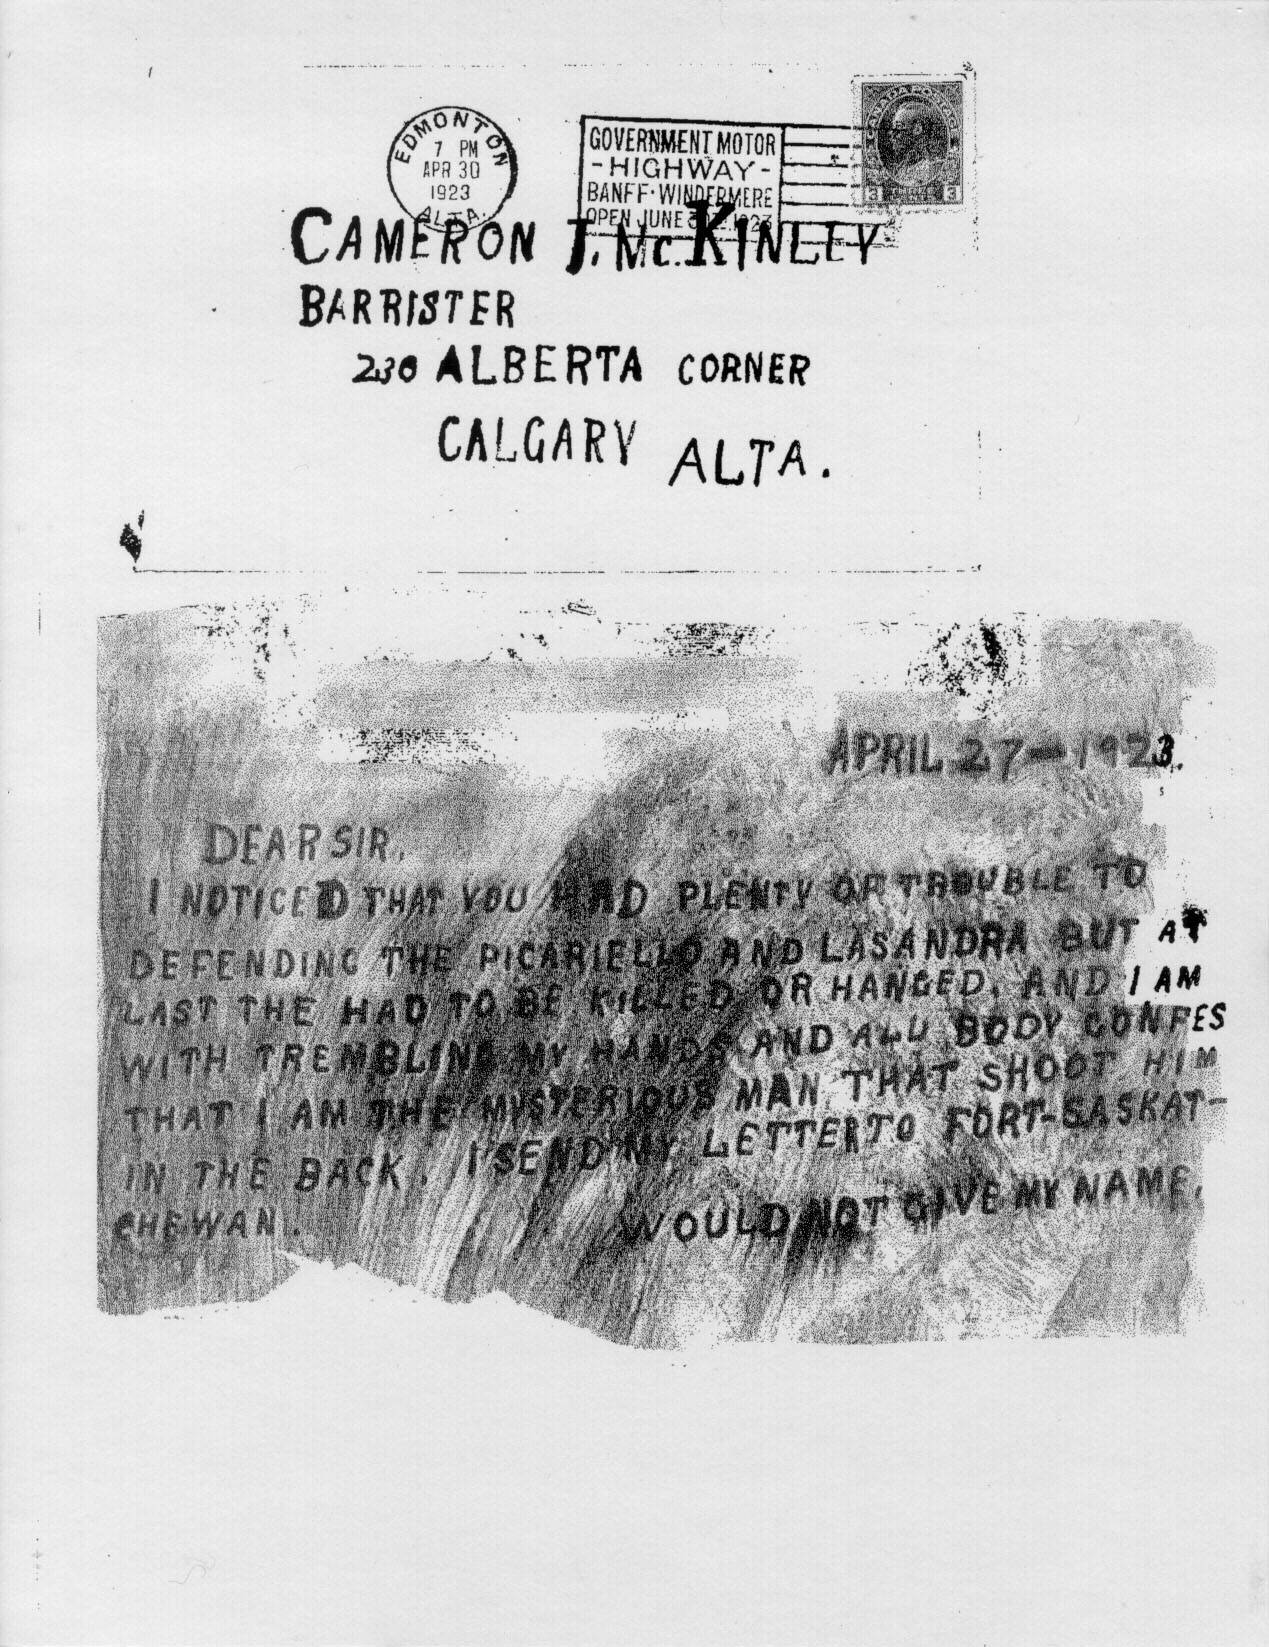 EDMONTON
7 PM
APR 30
1923
ALTA.
GOVERNMENT MOTOR
- HIGHWAY -
BANFF·WINDERMERE
OPEN JUNE 1923
CANADA POSTAGE
3 3
CAMERON J. McKINLEY
BARRISTER
230 ALBERTA CORNER
CALGARY ALTA.
APRIL 27-1923.
DEAR SIR.
I NOTICED THAT YOU HAD PLENTY OF TROUBLE TO
DEFENDING THE PICARIELLO AND LASANDRA BUT AT
LAST THE HAD TO BE KILLED OR HANGED. AND I AM
WITH TREMBLING MY HANDS AND ALL BODY CONFES
THAT I AM THE MYSTERIOUS MAN THAT SHOOT HIM
IN THE BACK. I SEND MY LETTER TO FORT-SASKAT-
CHEWAN. WOULD NOT GIVE MY NAME.